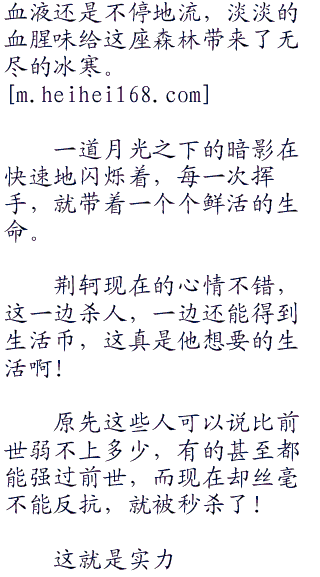 血液还是不停地流，淡淡的
血腥味给这座森林带来了无
尽的冰寒。
[m.heihei168.com]
一道月光之下的暗影在
快速地闪烁着，每一次挥
手，就带着一个个鲜活的生
命。
荆轲现在的心情不错，
这一边杀人，一边还能得到
生活币，这真是他想要的生
活啊！
原先这些人可以说比前
世弱不上多少，有的甚至都
能强过前世，而现在却丝毫
不能反抗，就被秒杀了！
这就是实力